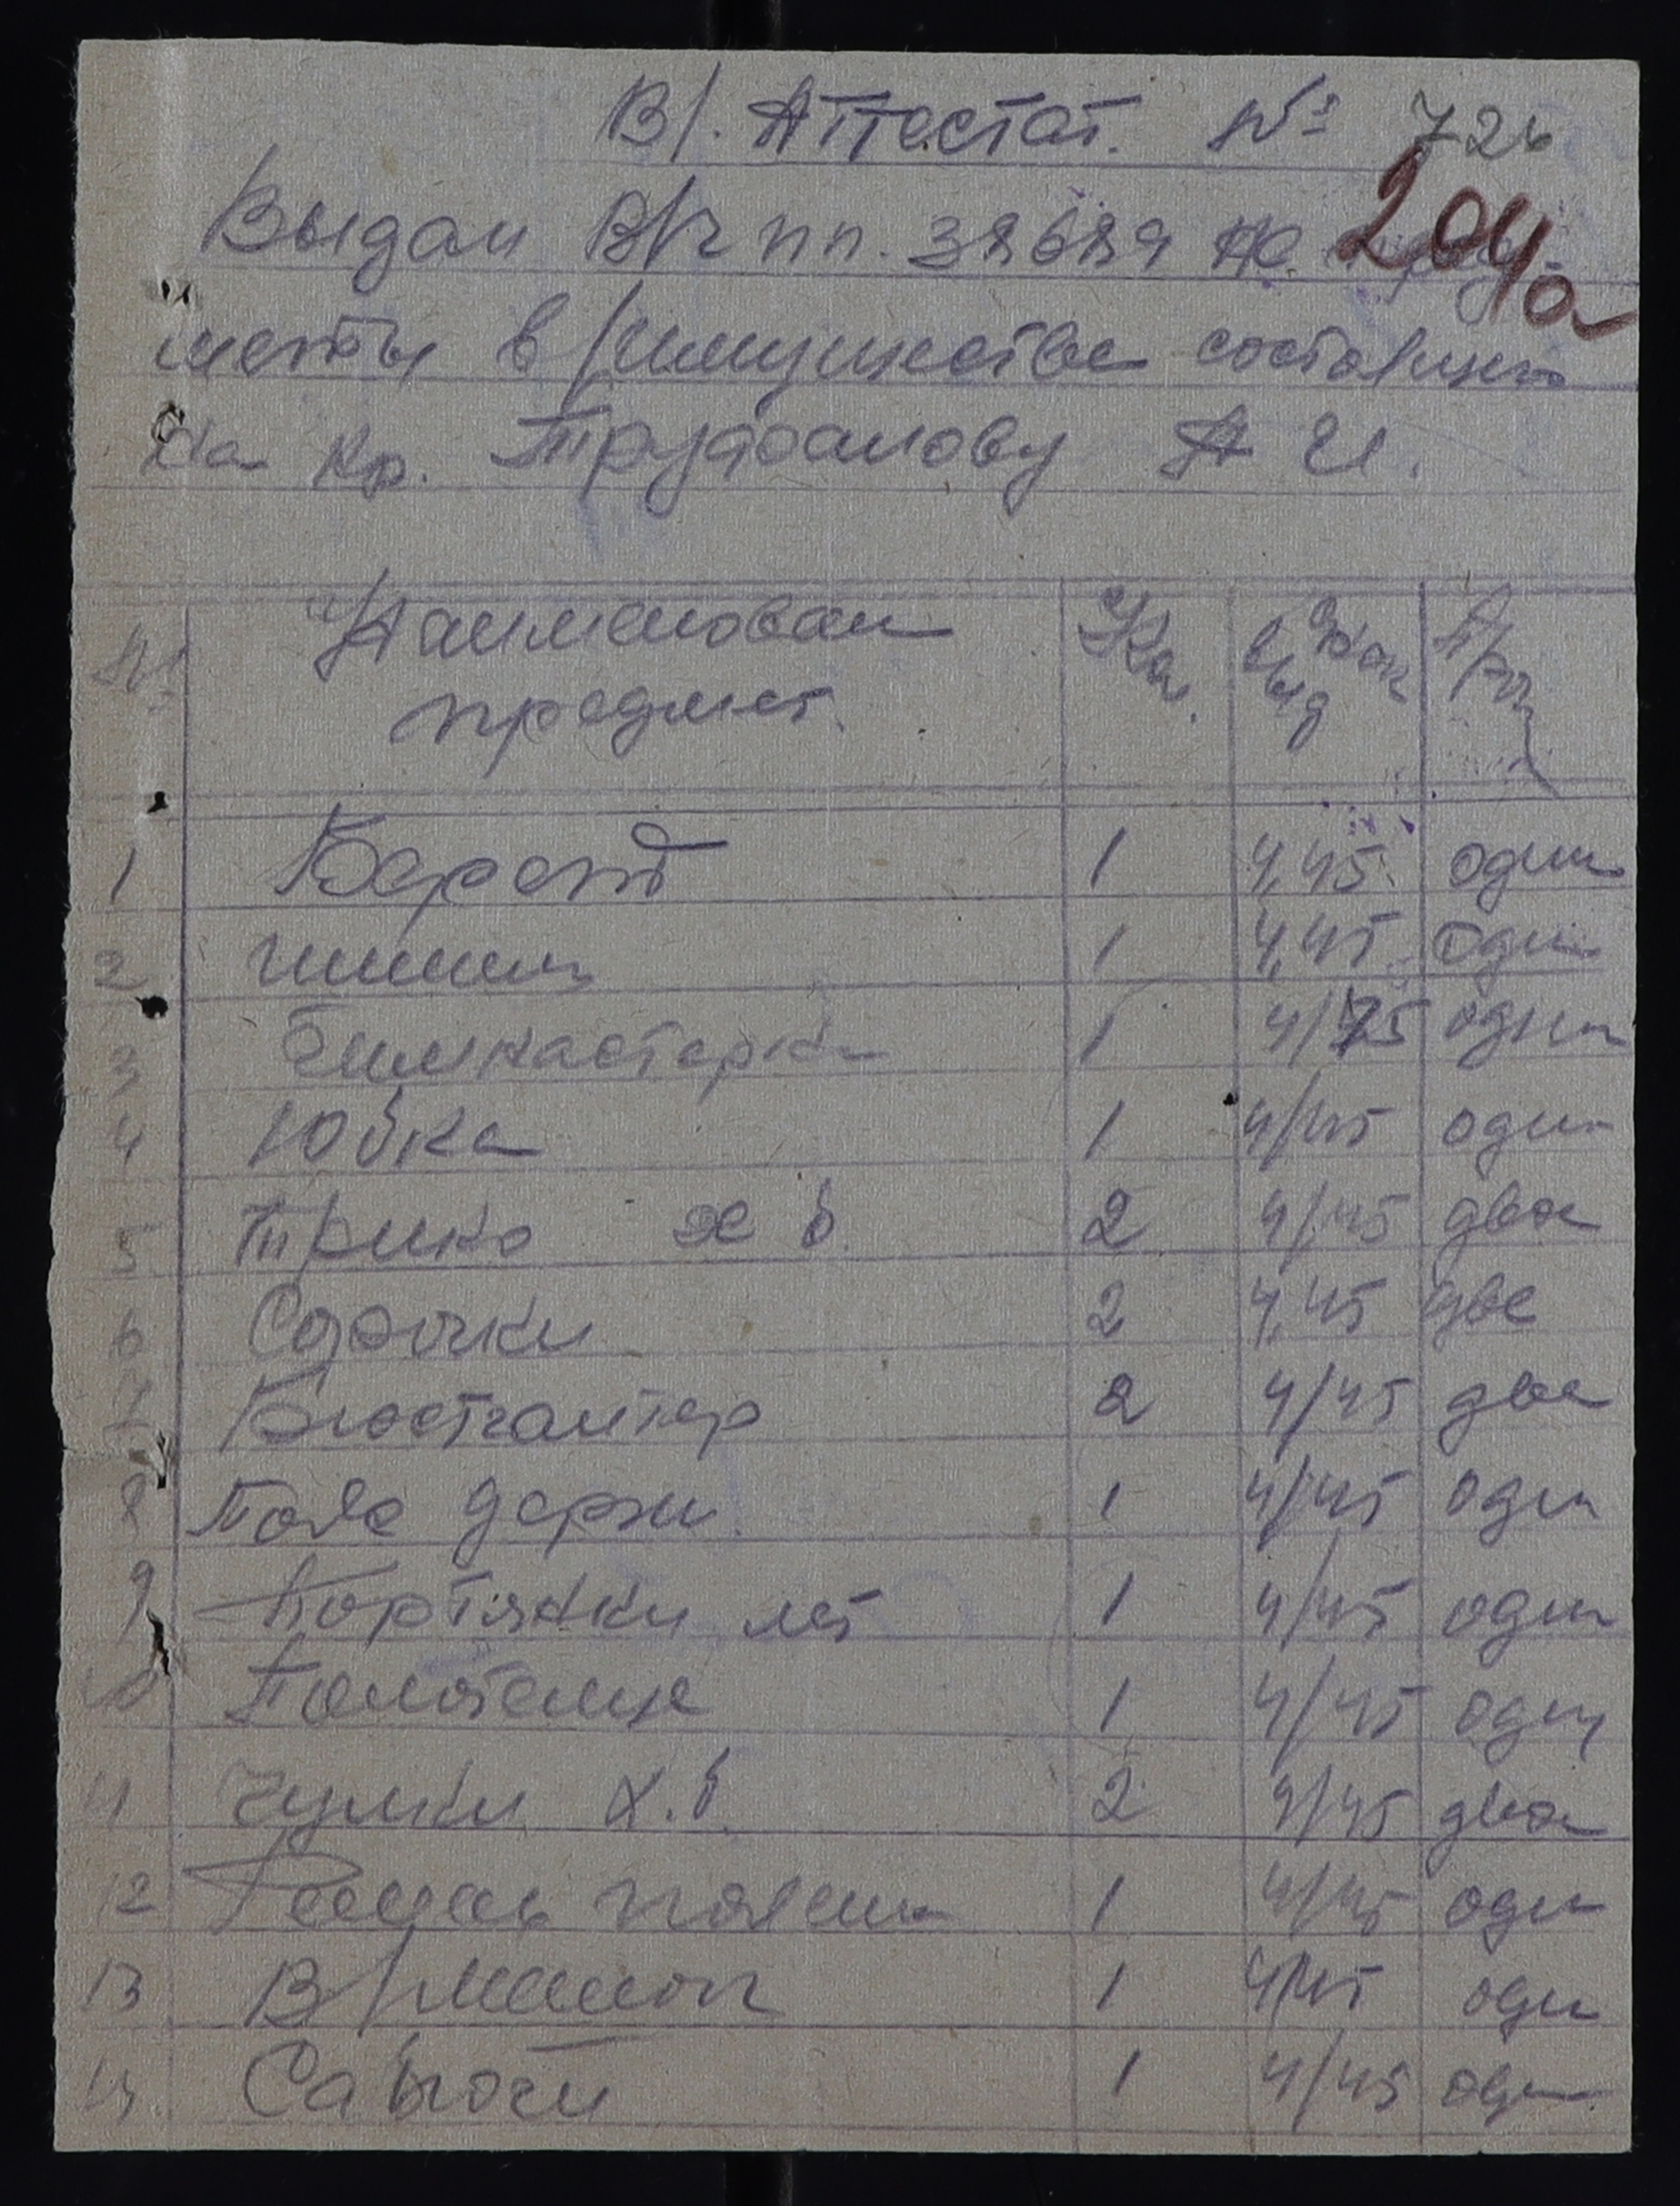 В/. Аттестат. № 726
204а
Выдан В/ч пп. 38689 на пред
меты в/имущества состоящего
на кр. Труфанову А И.
№ Наименован предмет. Кол. Когд выд Проп
1 Берет 1 4,45. один
2 шинель 1 4,45. один
3 Гимнастерка 1 4/45 один
4 Юбка 1 4/45 один
5 Трико х б. 2 4/45 два
6 Сорочки 2 4,45 две
7 Бюстгалтер 2 4/45 два
8 Пояс держ. 1 4/45 один
9 Портянки лет 1 4/45 один
10 Полотенце 1 4/45 один
11 Чулки х.б. 2 4/45 два
12 Ремень поясн 1 4/45 один
13 В/мешок 1 4/45 один
14. Сапоги 1 4/45 один